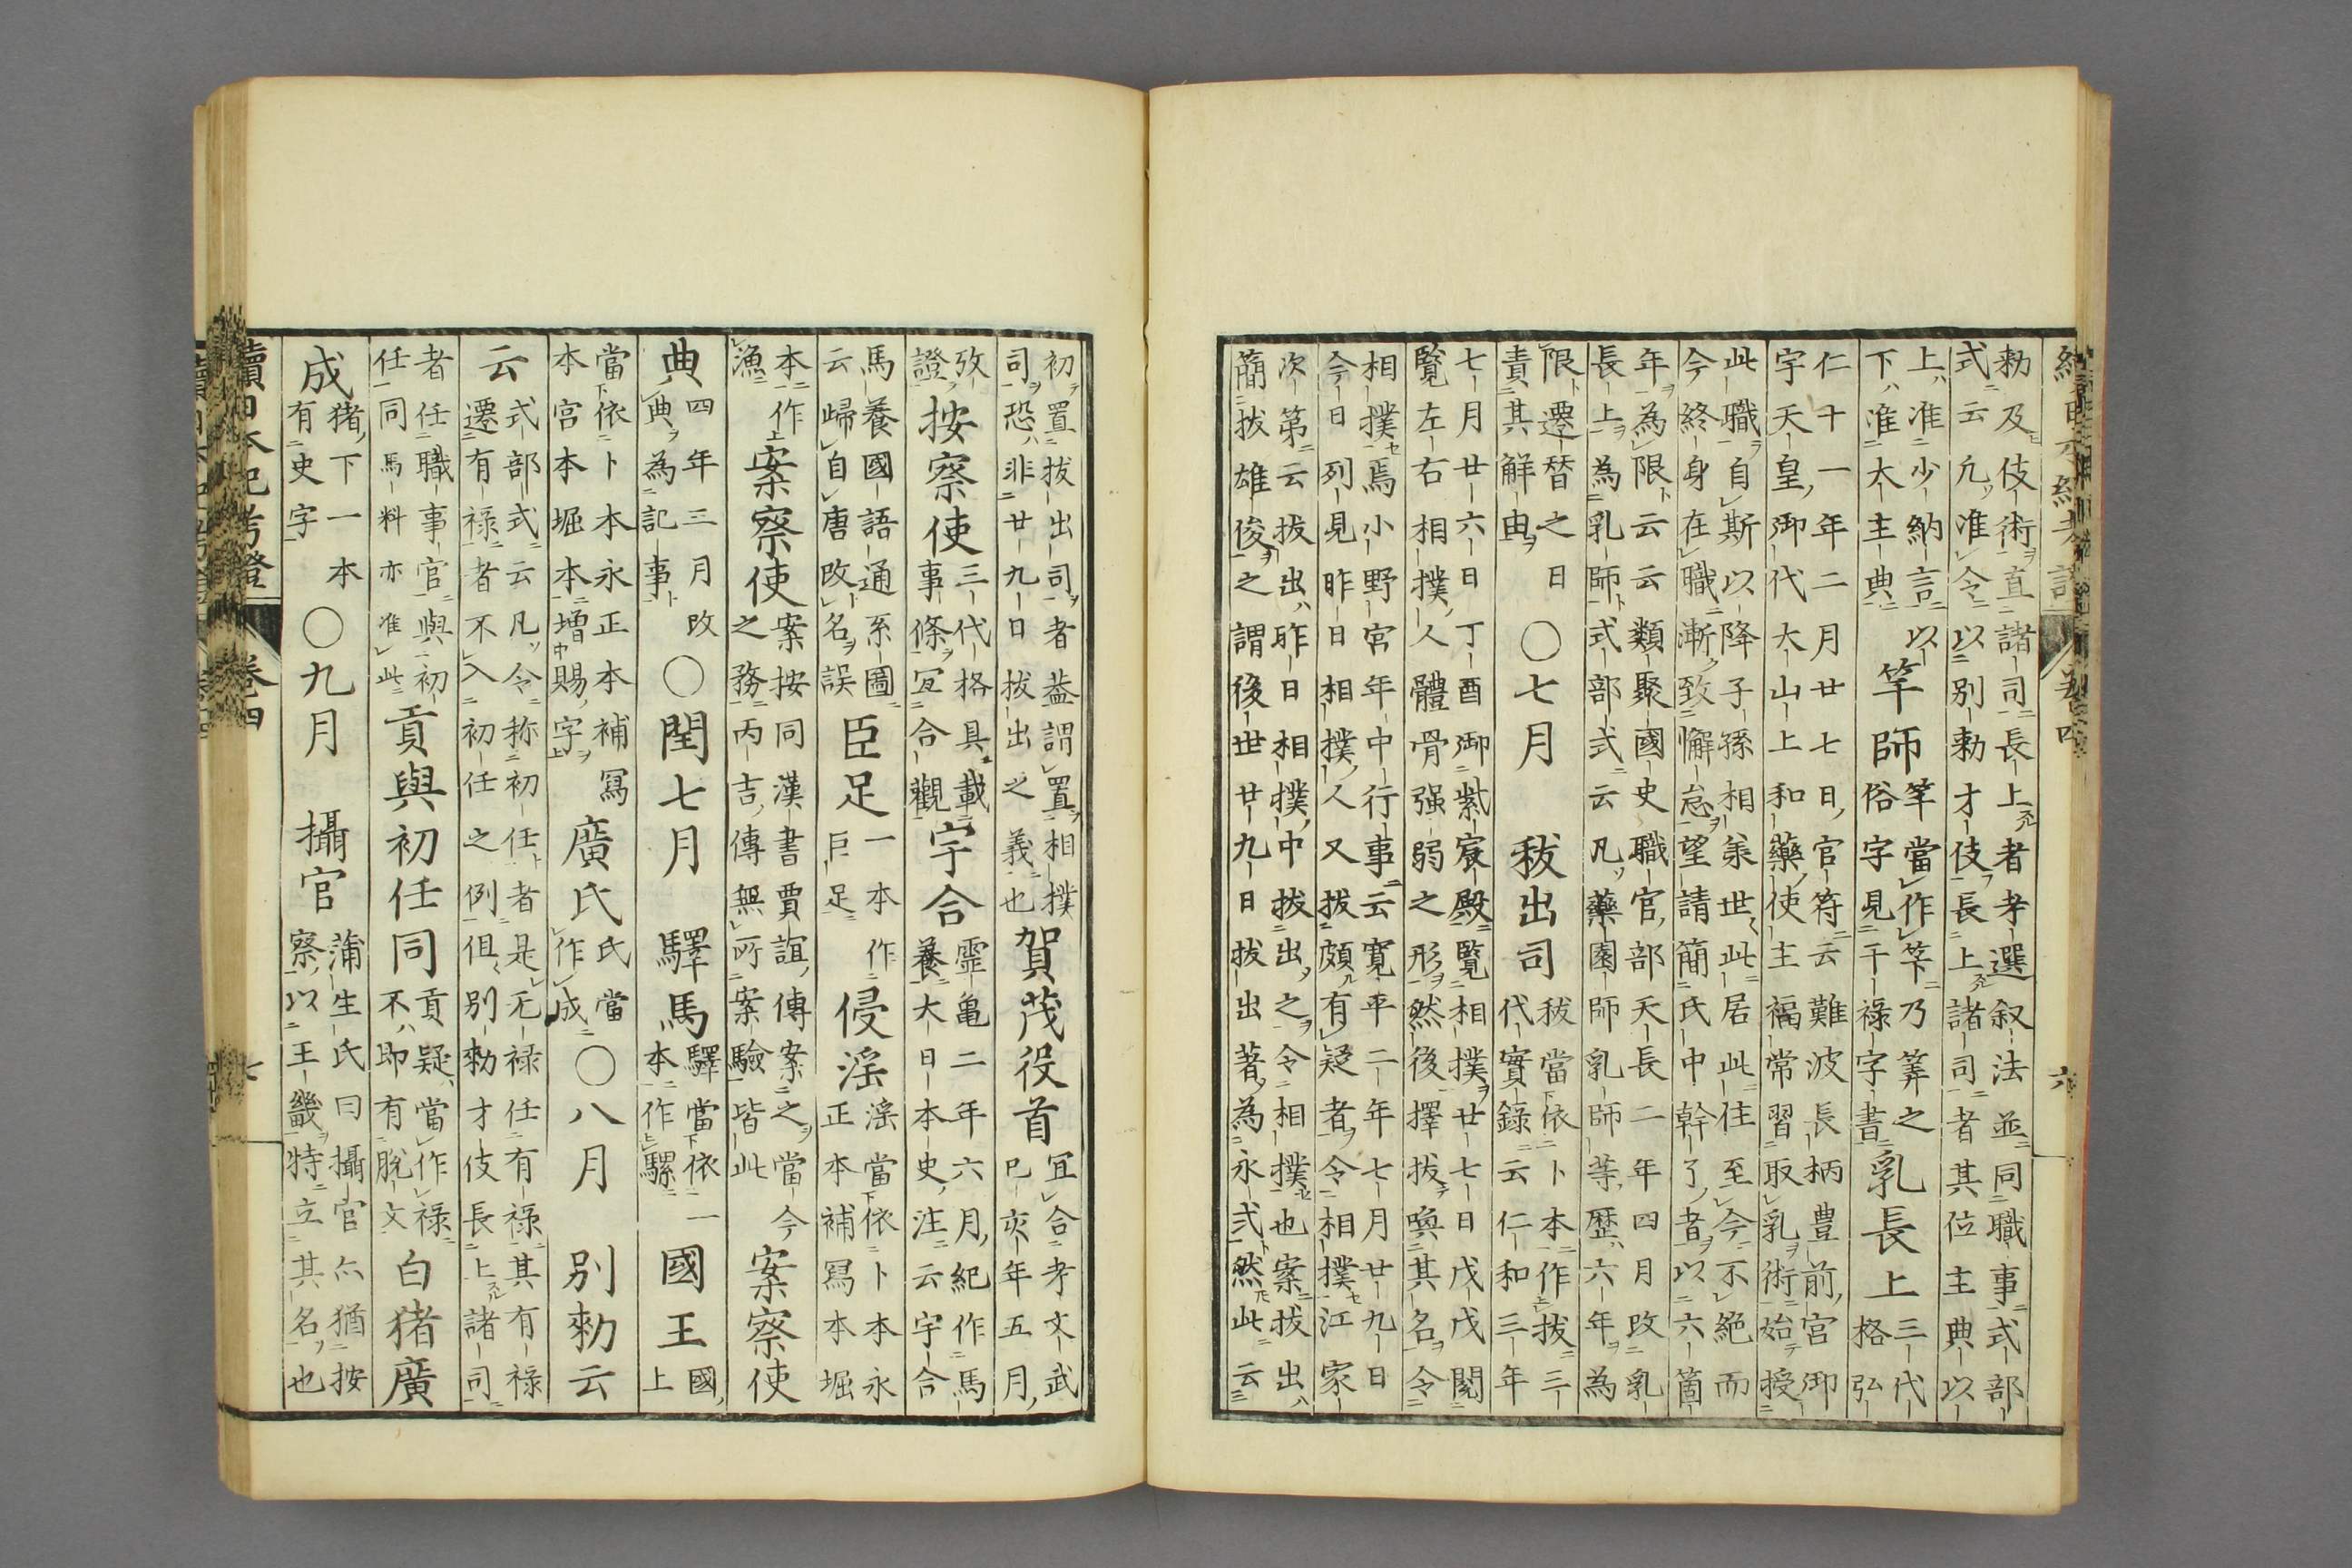 勅及伎術直諸司長上者考選叙法並同職事式部
式云凡准令以別勅才伎長上諸司者其位主典以
上准少納言以
下准大主典
竿師
竿當作竿下乃筭之
俗字見干禄字書
乳長上
三代
格弘
仁十一年二月廿七日官符云難波長柄豊前宮御
宇天皇御代大山上和藥使主福常習取乳術始授
此職自斯以降子孫相兼世〻此居此住至今不絶而
今終身在職漸致懈怠望請簡氏中幹了者以六箇
年為限云云類聚國史職官部天長二年四月改乳
長上為乳師式部式云凡藥園師乳師等歴六年為
限遷替之日
責其解由
〇七月 秡出司
秡當依卜本作抜三
代實録云仁和三年
七月廿六日丁酉御紫宸殿覧相撲廿七日戊戌閲
覧左右相撲人體骨强弱之形然後擇抜喚其名令
相撲焉小野宮年中行事云寛平二年七月廿九日
今日列見昨日相撲人又抜頗有疑者令相撲江家
次第云抜出昨日相撲中抜出之令相撲也案抜出
簡抜雄俊之謂後世廿九日抜出著為永式然此云
初置抜出司者葢謂置相撲
司恐非廿九日抜出之義也
賀茂役首
冝合考文武
巳亥年五月
攷
證
按察使
三代格具載
事條冝合觀
宇合
霊亀二年六月紀作馬
養大日本史注云宇合
馬養國語通系圖
云歸自唐改名誤
臣足
一本作
巨足
侵滛
滛當依卜本永
正本補冩本堀
本作
漁
案察使
案按同漢書賈誼傳案之當今
之務丙吉傳無所案驗皆此
案察使
典
四年三月改
典為記事
〇閏七月 驛馬
驛當依一
本作騾
國王
國
上
當依卜本永正本補冩
本宮本堀本増賜字
廣氏
氏當
作成
〇八月 別勅云
云
式部式云凡令称初任者是无禄任有禄其有禄
遷有禄者不入初任之例但別勅才伎長上諸司
者任職事官與初
任同馬料亦准此
貢與初任同
貢疑當作禄
不即有脱文
白猪廣
成
猪下一本
有史字
〇九月 攝官
蒲生氏曰攝官亦猶按
察以王畿特立其名也
續日本紀考證 卷四 七